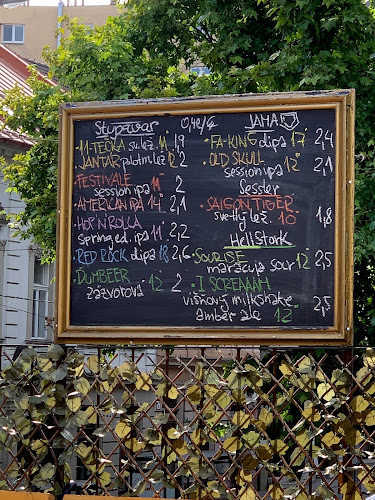 Stupavar 0,4l/€
11-TECKA sv. lež. 11 1,9
JANTÁR poltm. lež. 12 2,2
FESTIVALE
session ipa 11 2
AMERICAN IPA 14 2,1
HOP'N'ROLLA
spring ed. ipa 11 2,2
RED ROCK dipa 18 2,6
DUMBEER 12 2
zázvorová
JAMA
FA-KING dipa 17 2,4
OLD SKULL 12 2,1
session ipa
Sessler
SAIGON TIGER
svetlý lež. 10 1,8
Hellstork
SOURISE 12 2,5
maracuja sour
I SCREAAAM
višňový milkshake
amber ale 12 2,5